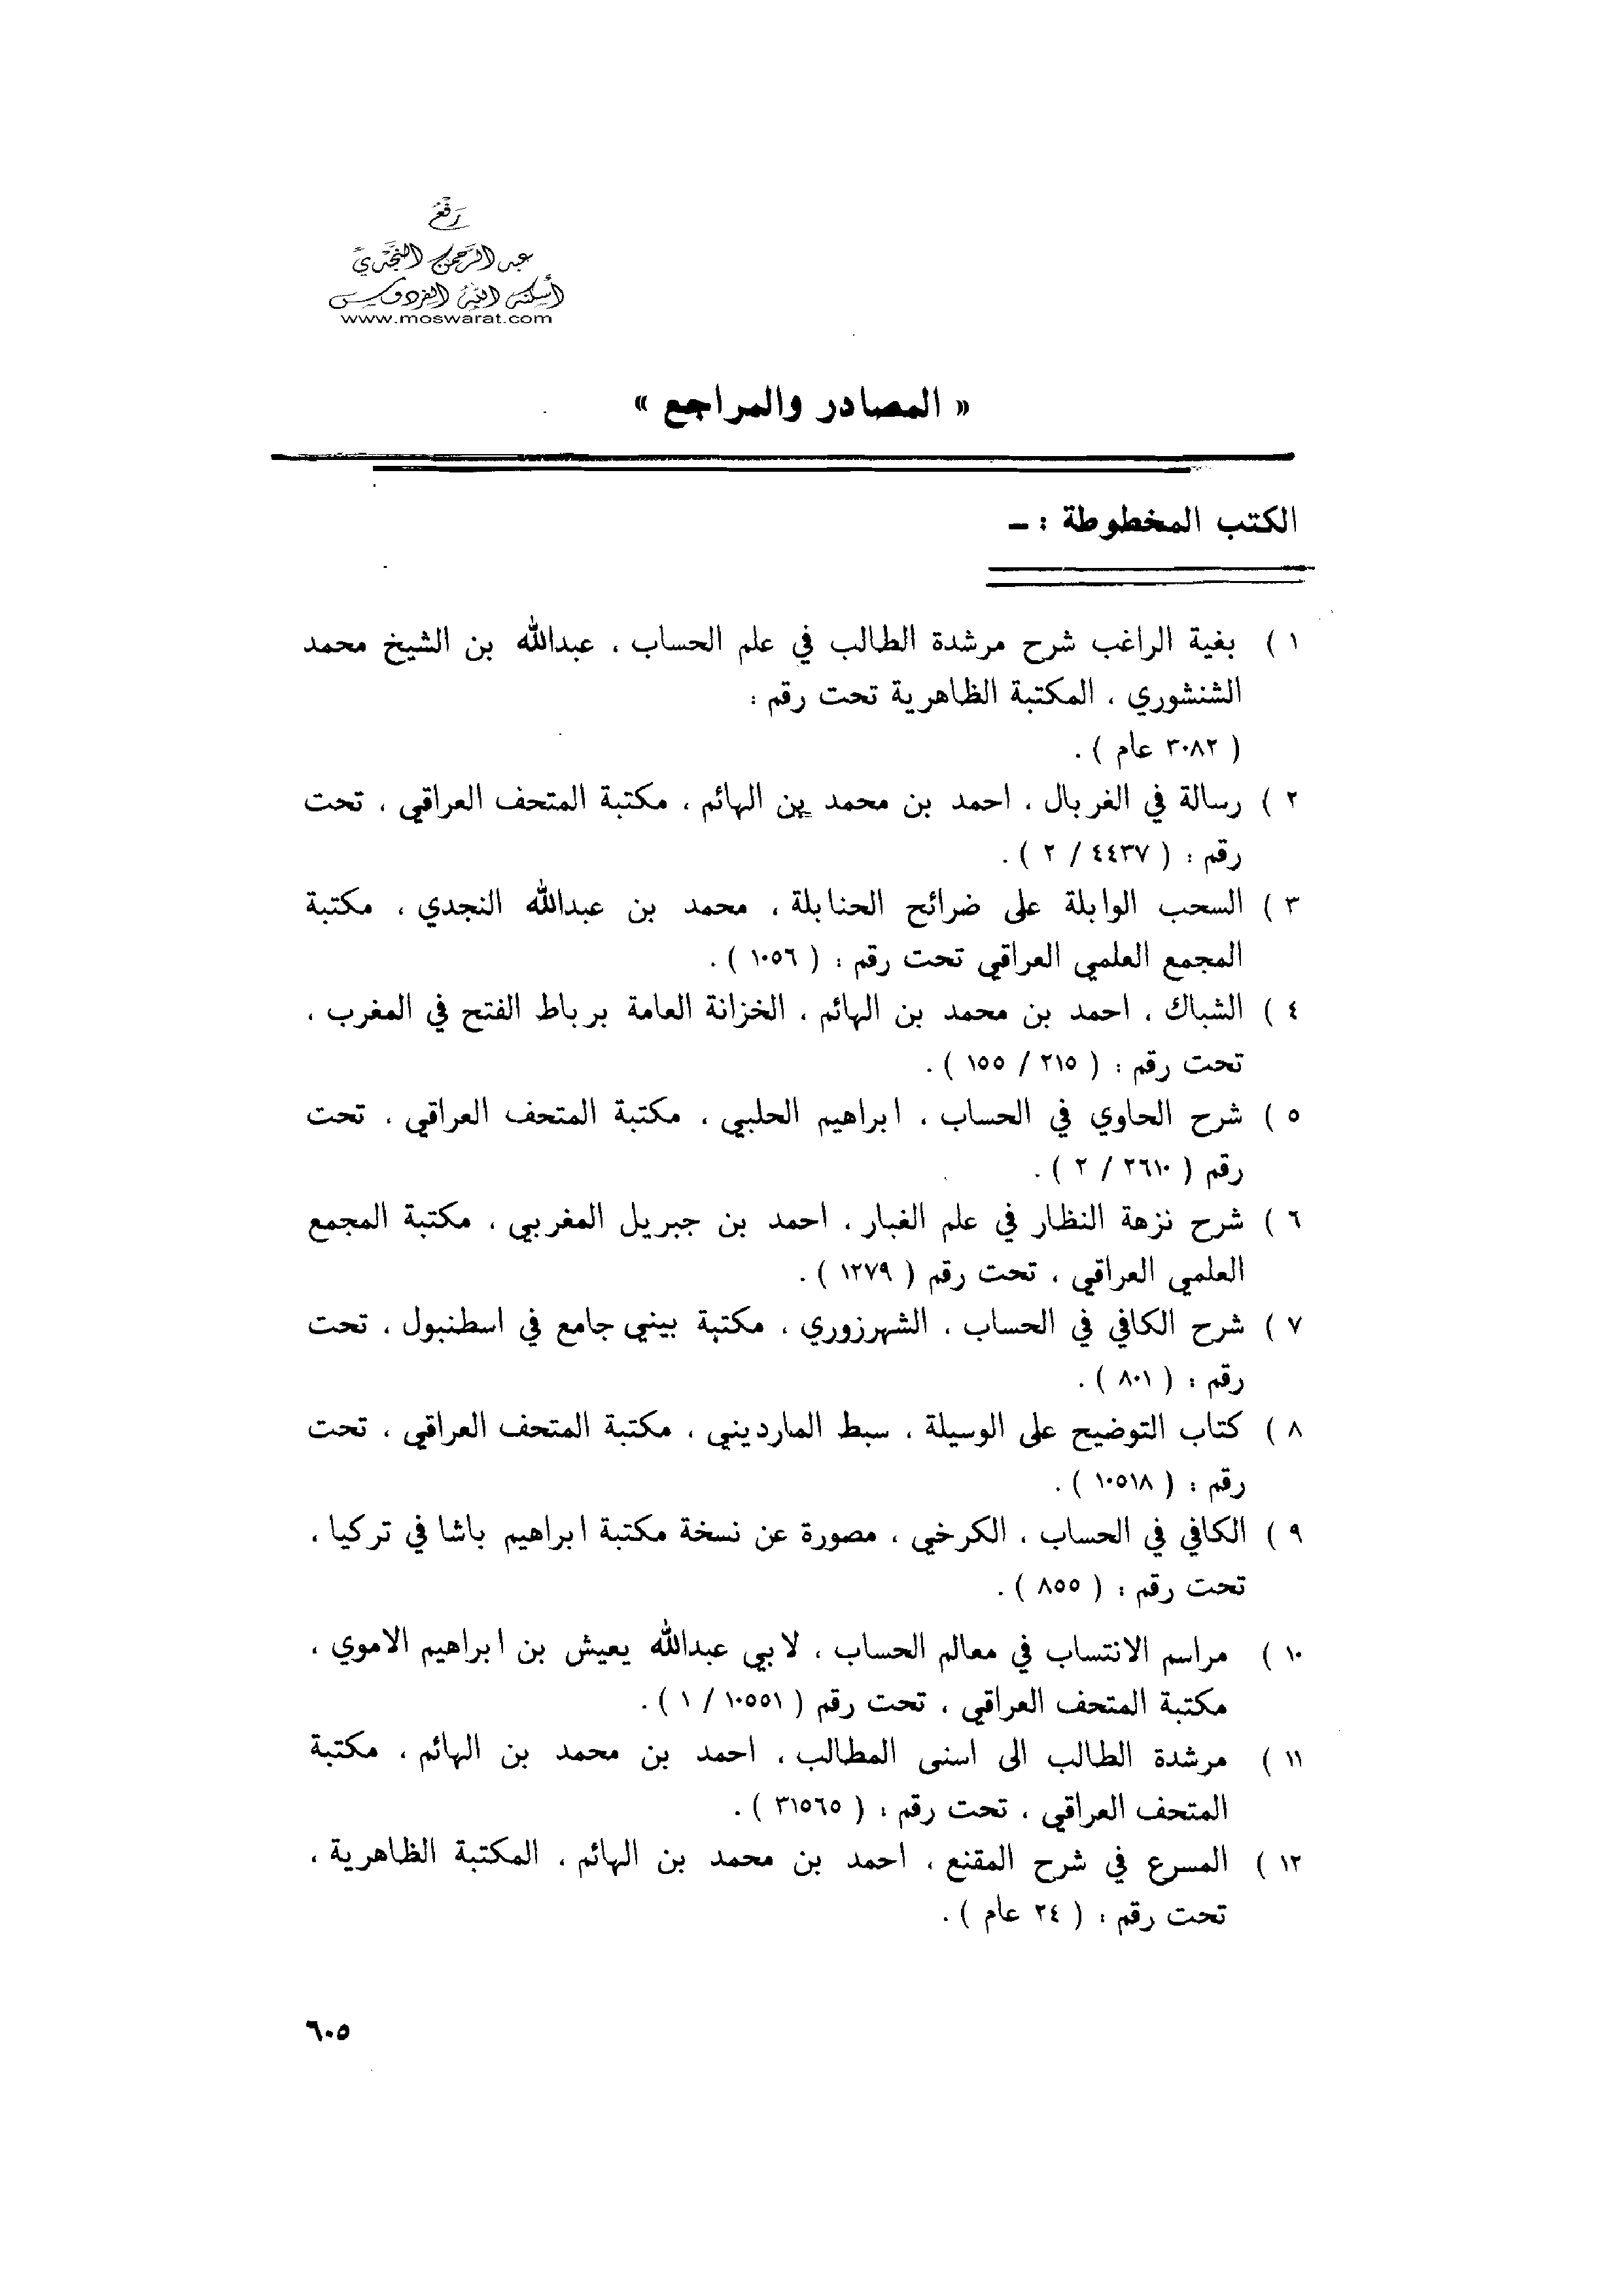 رفع
عبد الرحمن النجدي
أسكنه الله الفردوس
www.moswarat.com
« المصادر والمراجع »
الكتب المخطوطة : –
١ ) بغية الراغب شرح مرشدة الطالب في علم الحساب ، عبدالله بن الشيخ محمد
الشنشوري ، المكتبة الظاهرية تحت رقم :
( ٣٠٨٢ عام ) .
٢ ) رسالة في الغربال ، احمد بن محمد بن الهائم ، مكتبة المتحف العراقي ، تحت
رقم : ( ٤٤٣٧ / ٢ ) .
٣ ) السحب الوابلة على ضرائح الحنابلة ، محمد بن عبدالله النجدي ، مكتبة
المجمع العلمي العراقي تحت رقم : ( ١٠٥٦ ) .
٤ ) الشباك ، احمد بن محمد بن الهائم ، الخزانة العامة برباط الفتح في المغرب ،
تحت رقم : ( ٢١٥ / ١٥٥ ) .
٥ ) شرح الحاوي في الحساب ، ابراهيم الحلبي ، مكتبة المتحف العراقي ، تحت
رقم ( ٢٦١٠ / ٢ ) .
٦ ) شرح نزهة النظار في علم الغبار ، احمد بن جبريل المغربي ، مكتبة المجمع
العلمي العراقي ، تحت رقم ( ١٢٧٩ ) .
٧ ) شرح الكافي في الحساب ، الشهرزوري ، مكتبة بيني جامع في اسطنبول ، تحت
رقم : ( ٨٠١ ) .
٨ ) كتاب التوضيح على الوسيلة ، سبط المارديني ، مكتبة المتحف العراقي ، تحت
رقم : ( ١٠٥١٨ ) .
٩ ) الكافي في الحساب ، الكرخي ، مصورة عن نسخة مكتبة ابراهيم باشا في تركيا ،
تحت رقم : ( ٨٥٥ ) .
١٠ ) مراسم الانتساب في معالم الحساب ، لابي عبدالله يعيش بن ابراهيم الاموي ،
مكتبة المتحف العراقي ، تحت رقم ( ١٠٥٥١ / ١ ) .
١١ ) مرشدة الطالب الى اسنى المطالب ، احمد بن محمد بن الهائم ، مكتبة
المتحف العراقي ، تحت رقم : ( ٣١٥٦٥ ) .
١٢ ) المسرع في شرح المقنع ، احمد بن محمد بن الهائم ، المكتبة الظاهرية ،
تحت رقم : ( ٢٤ عام ) .
٦٠٥